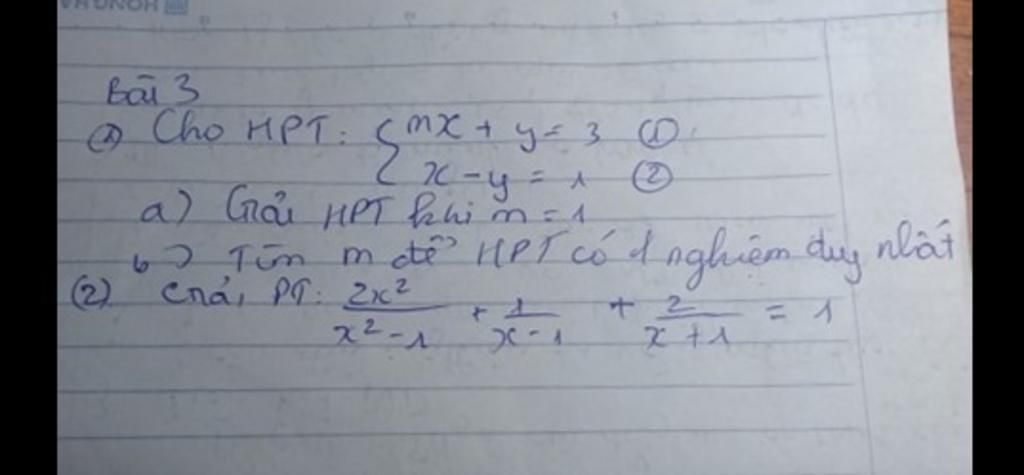 Bài 3
(1) Cho HPT: { mx + y = 3 (1)
x - y = 1 (2)
a) Giải HPT khi m = 1
b) Tìm m để HPT có 1 nghiệm duy nhất
(2) Giải PT: 2x²/(x²-1) + 1/(x-1) + 2/(x+1) = 1